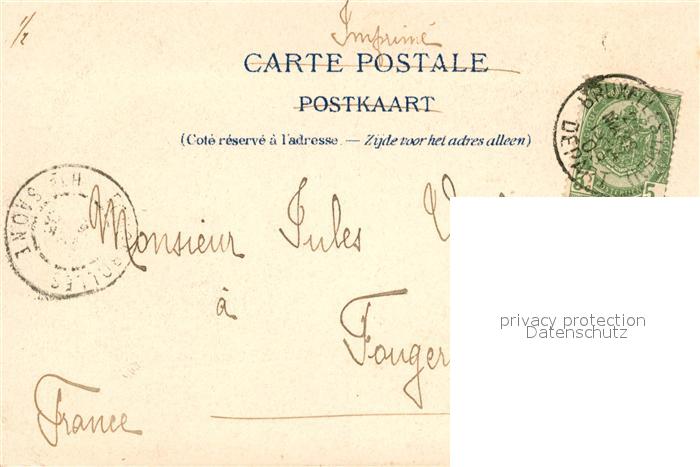 1/2
Imprimé
CARTE POSTALE
POSTKAART
(Coté réservé à l'adresse. — Zijde voor het adres alleen)
BRUXELLES
5
HTE SAONE
Monsieur Jules
à
Fouger
France
privacy protection
Datenschutz